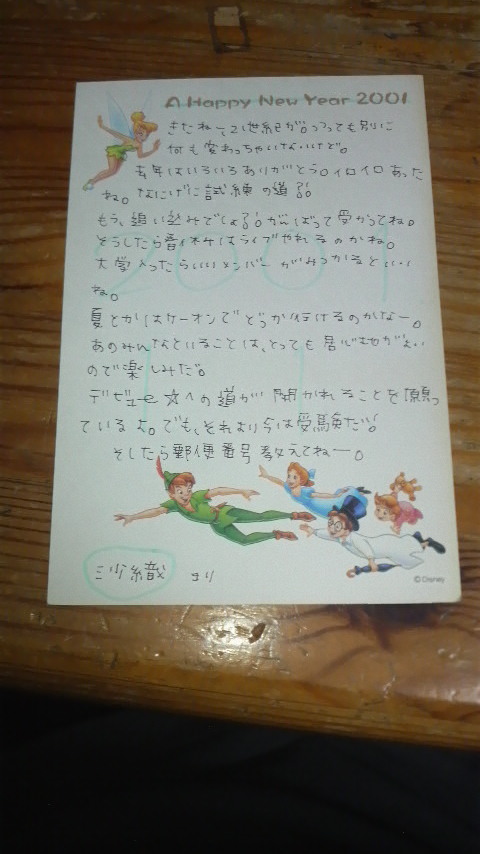 A Happy New Year 2001
きたねー21世紀が。っつっても別に
何も変わっちゃいないけど。
去年はいろいろありがとう。イロイロあった
ね。なにげに試練の道!?。
もう、追い込みでしょ!?がんばって受かってね。
そうしたら春休みはライブやれるのかね。
大学入ったらいいメンバーがみつかるといい
ね。
夏とかはケーオンでどっか行けるのかなー。
あのみんなといることは、とっても居心地がよい
ので楽しみだ。
デビュー☆への道が開かれることを願っ
ているよ。でも、それより今は受験だ!
そしたら郵便番号教えてねー。
沙織 より
© Disney
2001